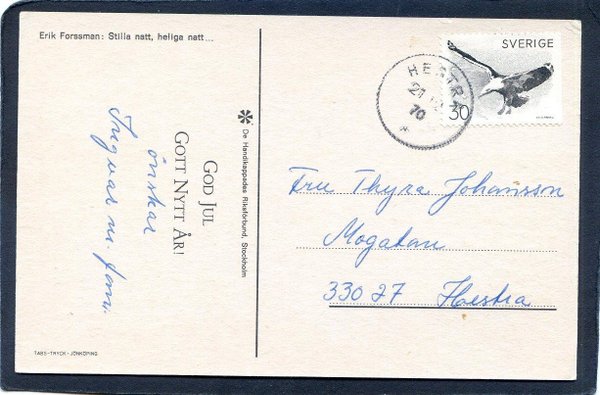 Erik Forssman: Stilla natt, heliga natt...
GOD JUL
GOTT NYTT ÅR!
önskar
Ingvar m. fam.
De Handikappades Riksförbund, Stockholm
TABS-TRYCK-JÖNKÖPING
SVERIGE
30
HESTRA
21
70
Fru Thyra Johansson
Mogatan
33027 Hestra